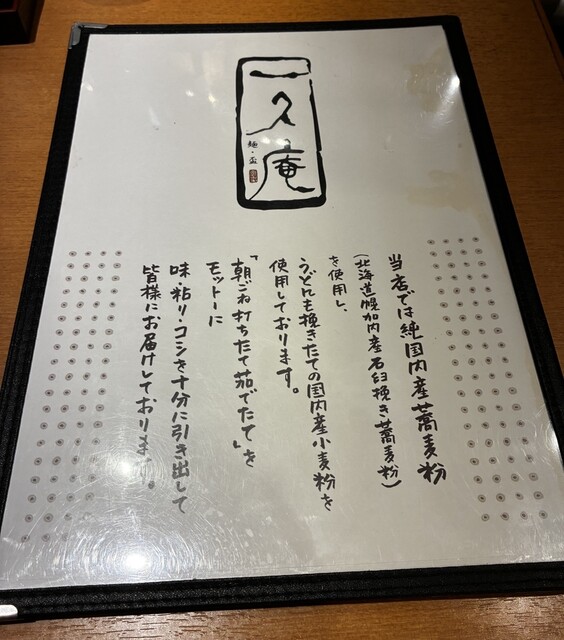 一久庵
麺・盃
当店では純国内産蕎麦粉
(北海道幌加内産石臼挽き蕎麦粉)
を使用し、
うどんも挽きたての国内産小麦粉を
使用しております。
「朝ごね打ちたて茹でたて」を
モットーに
味・粘り・コシを十分に引き出して
皆様にお届けしております。